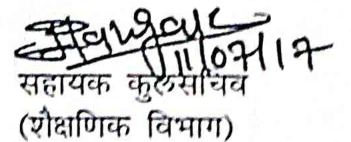 11/07/17
सहायक कुलसचिव
(शैक्षणिक विभाग)